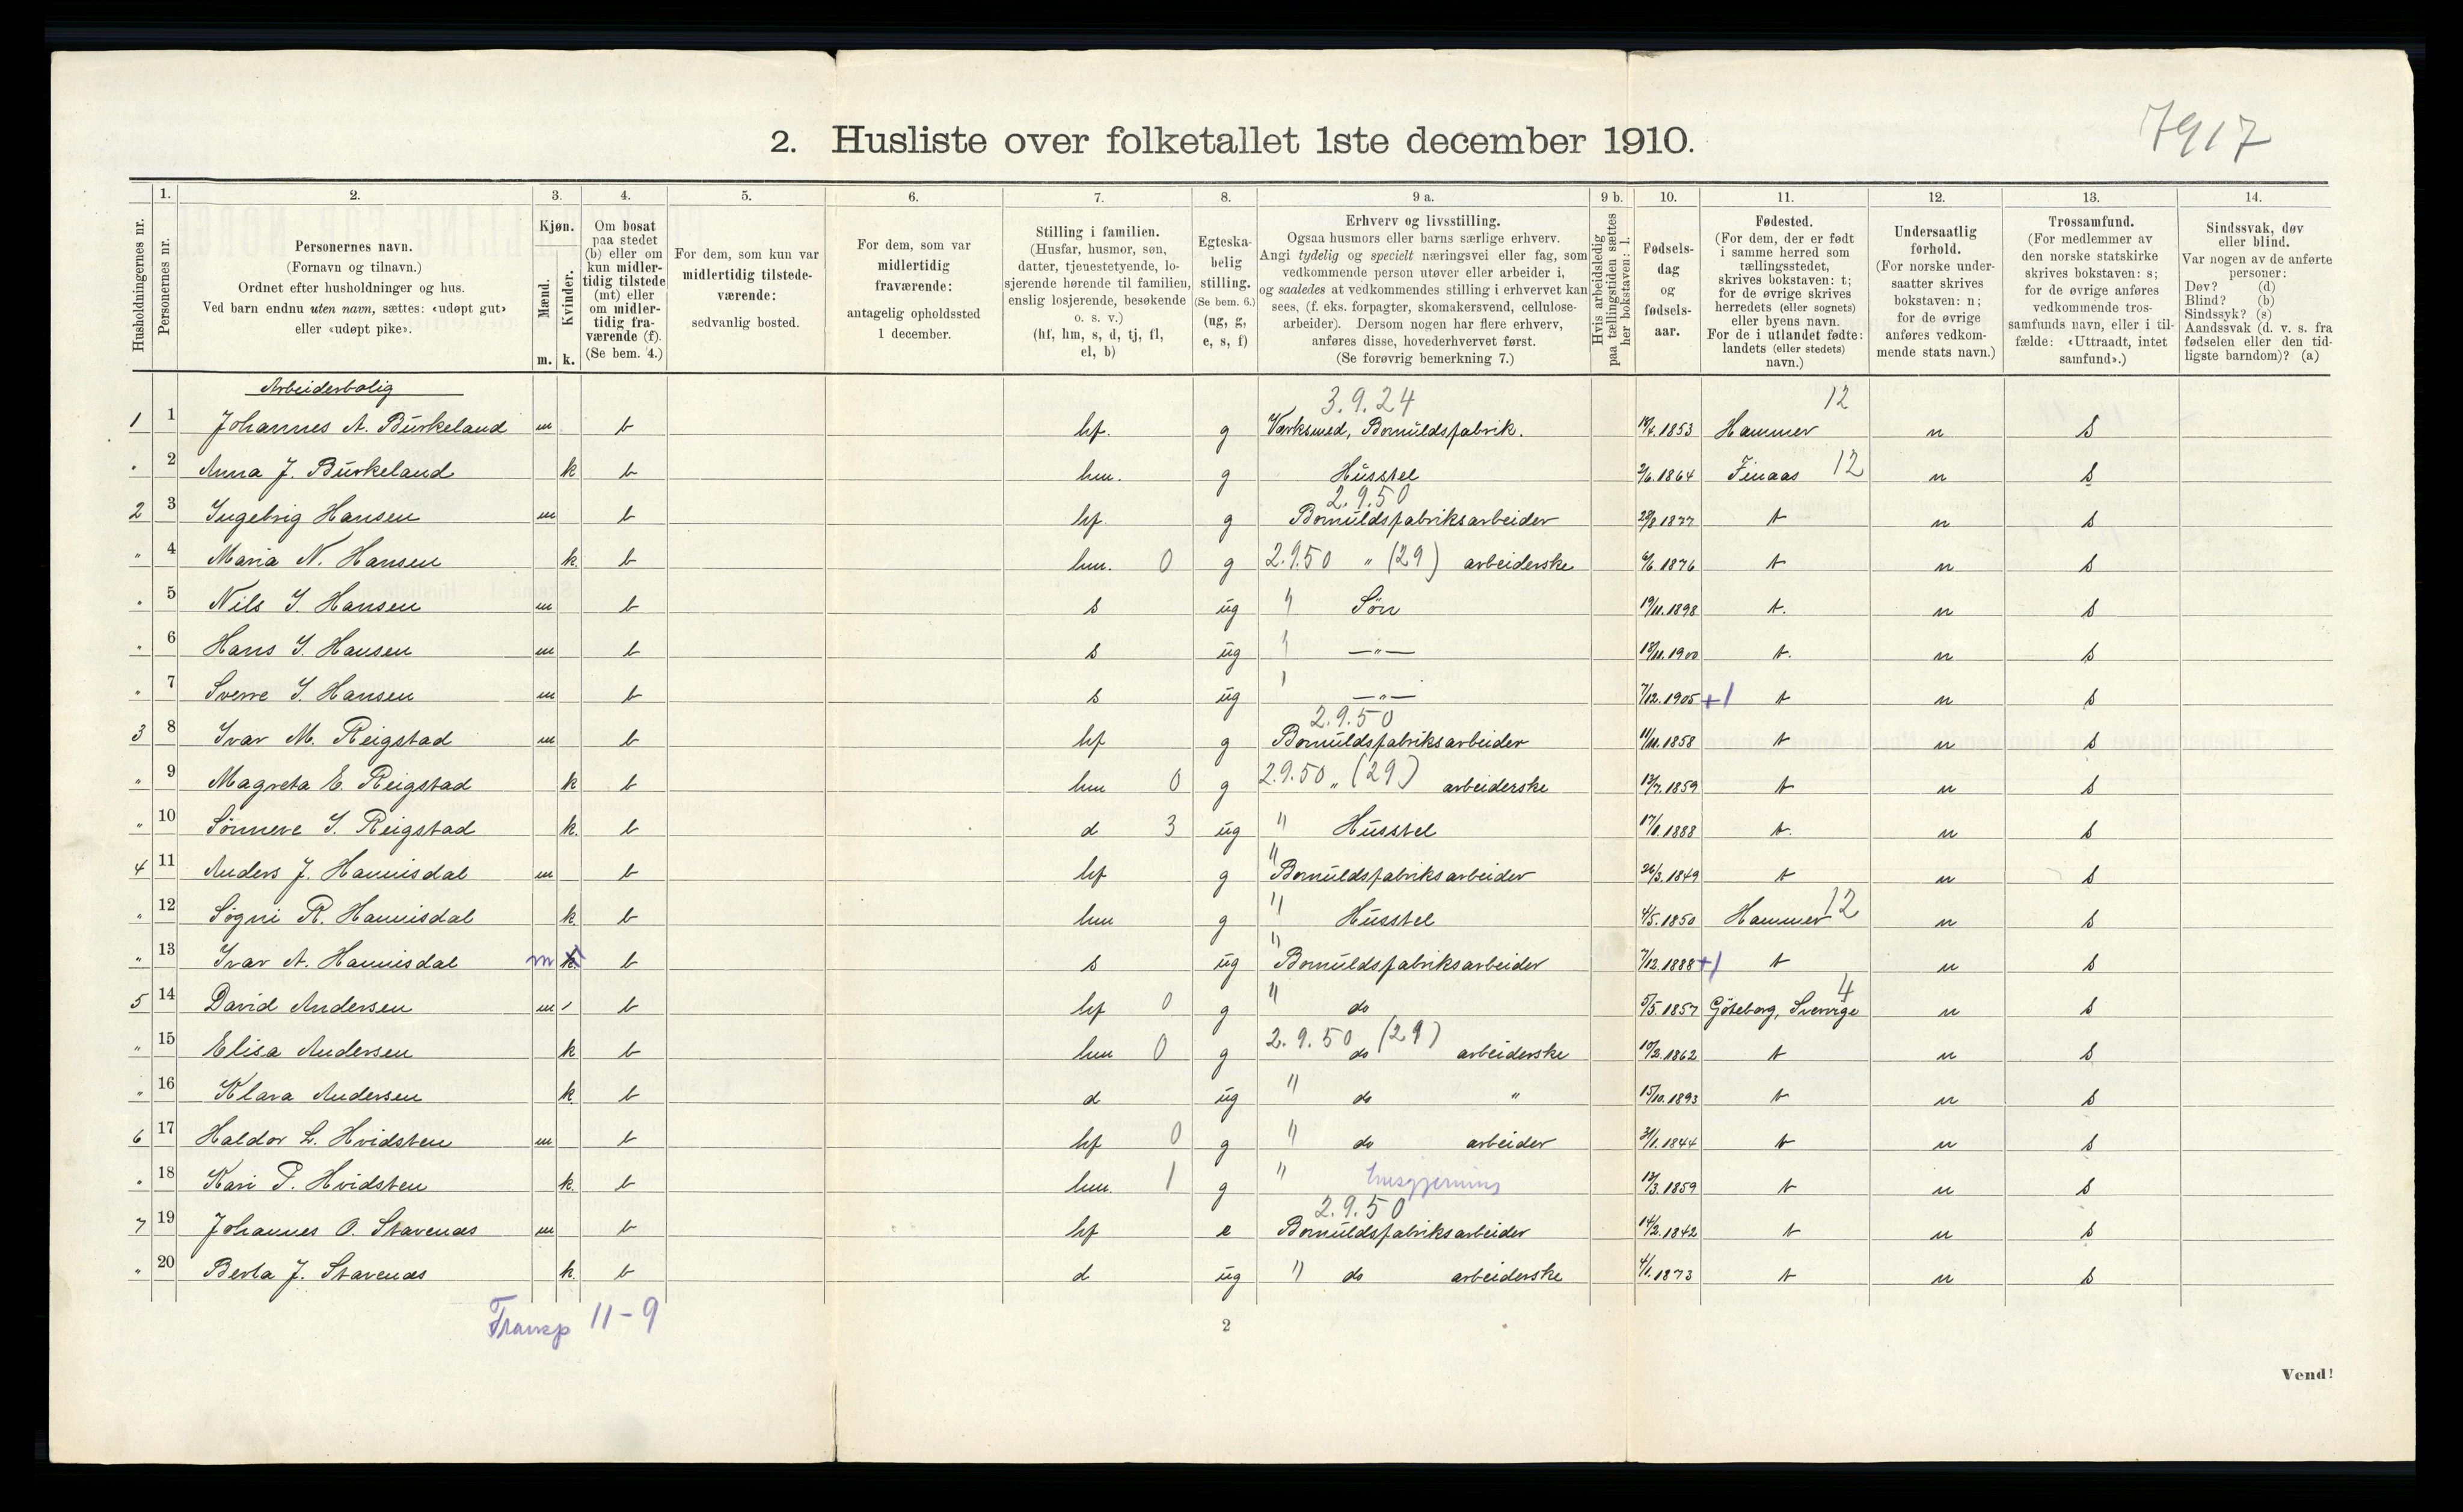 7917
2. Husliste over folketallet 1ste december 1910.
Husholdningernes nr.
1. Personernes nr.
2. Personernes navn.
(Fornavn og tilnavn.)
Ordnet efter husholdninger og hus.
Ved barn endnu uten navn, sættes: «udøpt gut»
eller «udøpt pike».
3. Kjøn.
Mænd. m.
Kvinder. k.
4. Om bosat
paa stedet
(b) eller om
kun midler-
tidig tilstede
(mt) eller
om midler-
tidig fra-
værende (f).
(Se bem. 4.)
5. For dem, som kun var
midlertidig tilstede-
værende:
sedvanlig bosted.
6. For dem, som var
midlertidig
fraværende:
antagelig opholdssted
1 december.
7. Stilling i familien.
(Husfar, husmor, søn,
datter, tjenestetyende, lo-
sjerende hørende til familien,
enslig losjerende, besøkende
o. s. v.)
(hf, hm, s, d, tj, fl,
el, b)
8. Egteska-
belig
stilling.
(Se bem. 6.)
(ug, g,
e, s, f)
9 a. Erhverv og livsstilling.
Ogsaa husmors eller barns særlige erhverv.
Angi tydelig og specielt næringsvei eller fag, som
vedkommende person utøver eller arbeider i,
og saaledes at vedkommendes stilling i erhvervet kan
sees, (f. eks. forpagter, skomakersvend, cellulose-
arbeider). Dersom nogen har flere erhverv,
anføres disse, hovederhvervet først.
(Se forøvrig bemerkning 7.)
9 b. Hvis arbeidsledig
paa tællingstiden sættes
her bokstaven: l.
10. Fødsels-
dag
og
fødsels-
aar.
11. Fødested.
(For dem, der er født
i samme herred som
tællingsstedet,
skrives bokstaven: t;
for de øvrige skrives
herredets (eller sognets)
eller byens navn.
For de i utlandet fødte:
landets (eller stedets)
navn.)
12. Undersaatlig
forhold.
(For norske under-
saatter skrives
bokstaven: n;
for de øvrige
anføres vedkom-
mende stats navn.)
13. Trossamfund.
(For medlemmer av
den norske statskirke
skrives bokstaven: s;
for de øvrige anføres
vedkommende tros-
samfunds navn, eller i til-
fælde: «Uttraadt, intet
samfund».)
14. Sindssvak, døv
eller blind.
Var nogen av de anførte
personer:
Døv? (d)
Blind? (b)
Sindssyk? (s)
Aandssvak (d. v. s. fra
fødselen eller den tid-
ligste barndom)? (a)
Arbeiderbolig
3.9.24 12
1 1 Johannes A. Burkeland m b hf. g Værksmed, Bomuldsfabrik. 1853 Hammer n s
" 2 Anna J. Burkeland k b hm. g Husstel 2/6.1864 Finaas 12 n s
2.9.50
2 3 Ingebrig Hansen m b hf. g Bomuldsfabriksarbeider 28/8 1877 t n s
" 4 Maria N. Hansen k b hm. 0 g 2.9.50 " (29) arbeiderske 6/6.1876 t n s
" 5 Nils I. Hansen m b s ug " Søn 19/11.1898 t. n s
" 6 Hans I. Hansen m b s ug " —"— 18/11.1900 t. n s
" 7 Sverre I. Hansen m b s ug " —"— 7/12.1905 +1 t n s
2.9.50
3 8 Ivar M. Reigstad m b hf g Bomuldsfabriksarbeider 11/11.1858 t n s
" 9 Magreta E. Reigstad k b hm 0 g 2.9.50 " (29) arbeiderske 13/7.1859 t n s
" 10 Sønneve I. Reigstad k. b d 3 ug " Husstel 17/8.1888 t. n s
4 11 Anders J. Hannisdal m b hf g " Bomuldsfabriksarbeider 26/3.1849 t n s
" 12 Søgni R. Hannisdal k b hm g " Husstel 4/5.1850 Hammer 12 n s
" 13 Ivar A. Hannisdal m k b s ug " Bomuldsfabriksarbeider 7/12.1888 +1 t n s
5 14 David Andersen m b hf 0 g " do 5/5.1857 Göteborg, Sverrige 4 n s
" 15 Elisa Andersen k b hm 0 g 2.9.50 do (29) arbeiderske 10/2.1862 t n s
" 16 Klara Andersen k b d ug " do " 15/10.1893 t n s
6 17 Haldor L. Hvidsten m b hf 0 g " do arbeider 31/1.1844 t n s
" 18 Kari P. Hvidsten k. b hm. 1 g " husgjerning 13/3.1859 t n s
2.9.50
7 19 Johannes O. Stavenæs m b hf e Bomuldsfabriksarbeider 14/2.1842 t n s
" 20 Berta J. Stavenæs k. b d ug " do arbeiderske 4/1.1873 t n s
Transp 11-9
2
Vend!